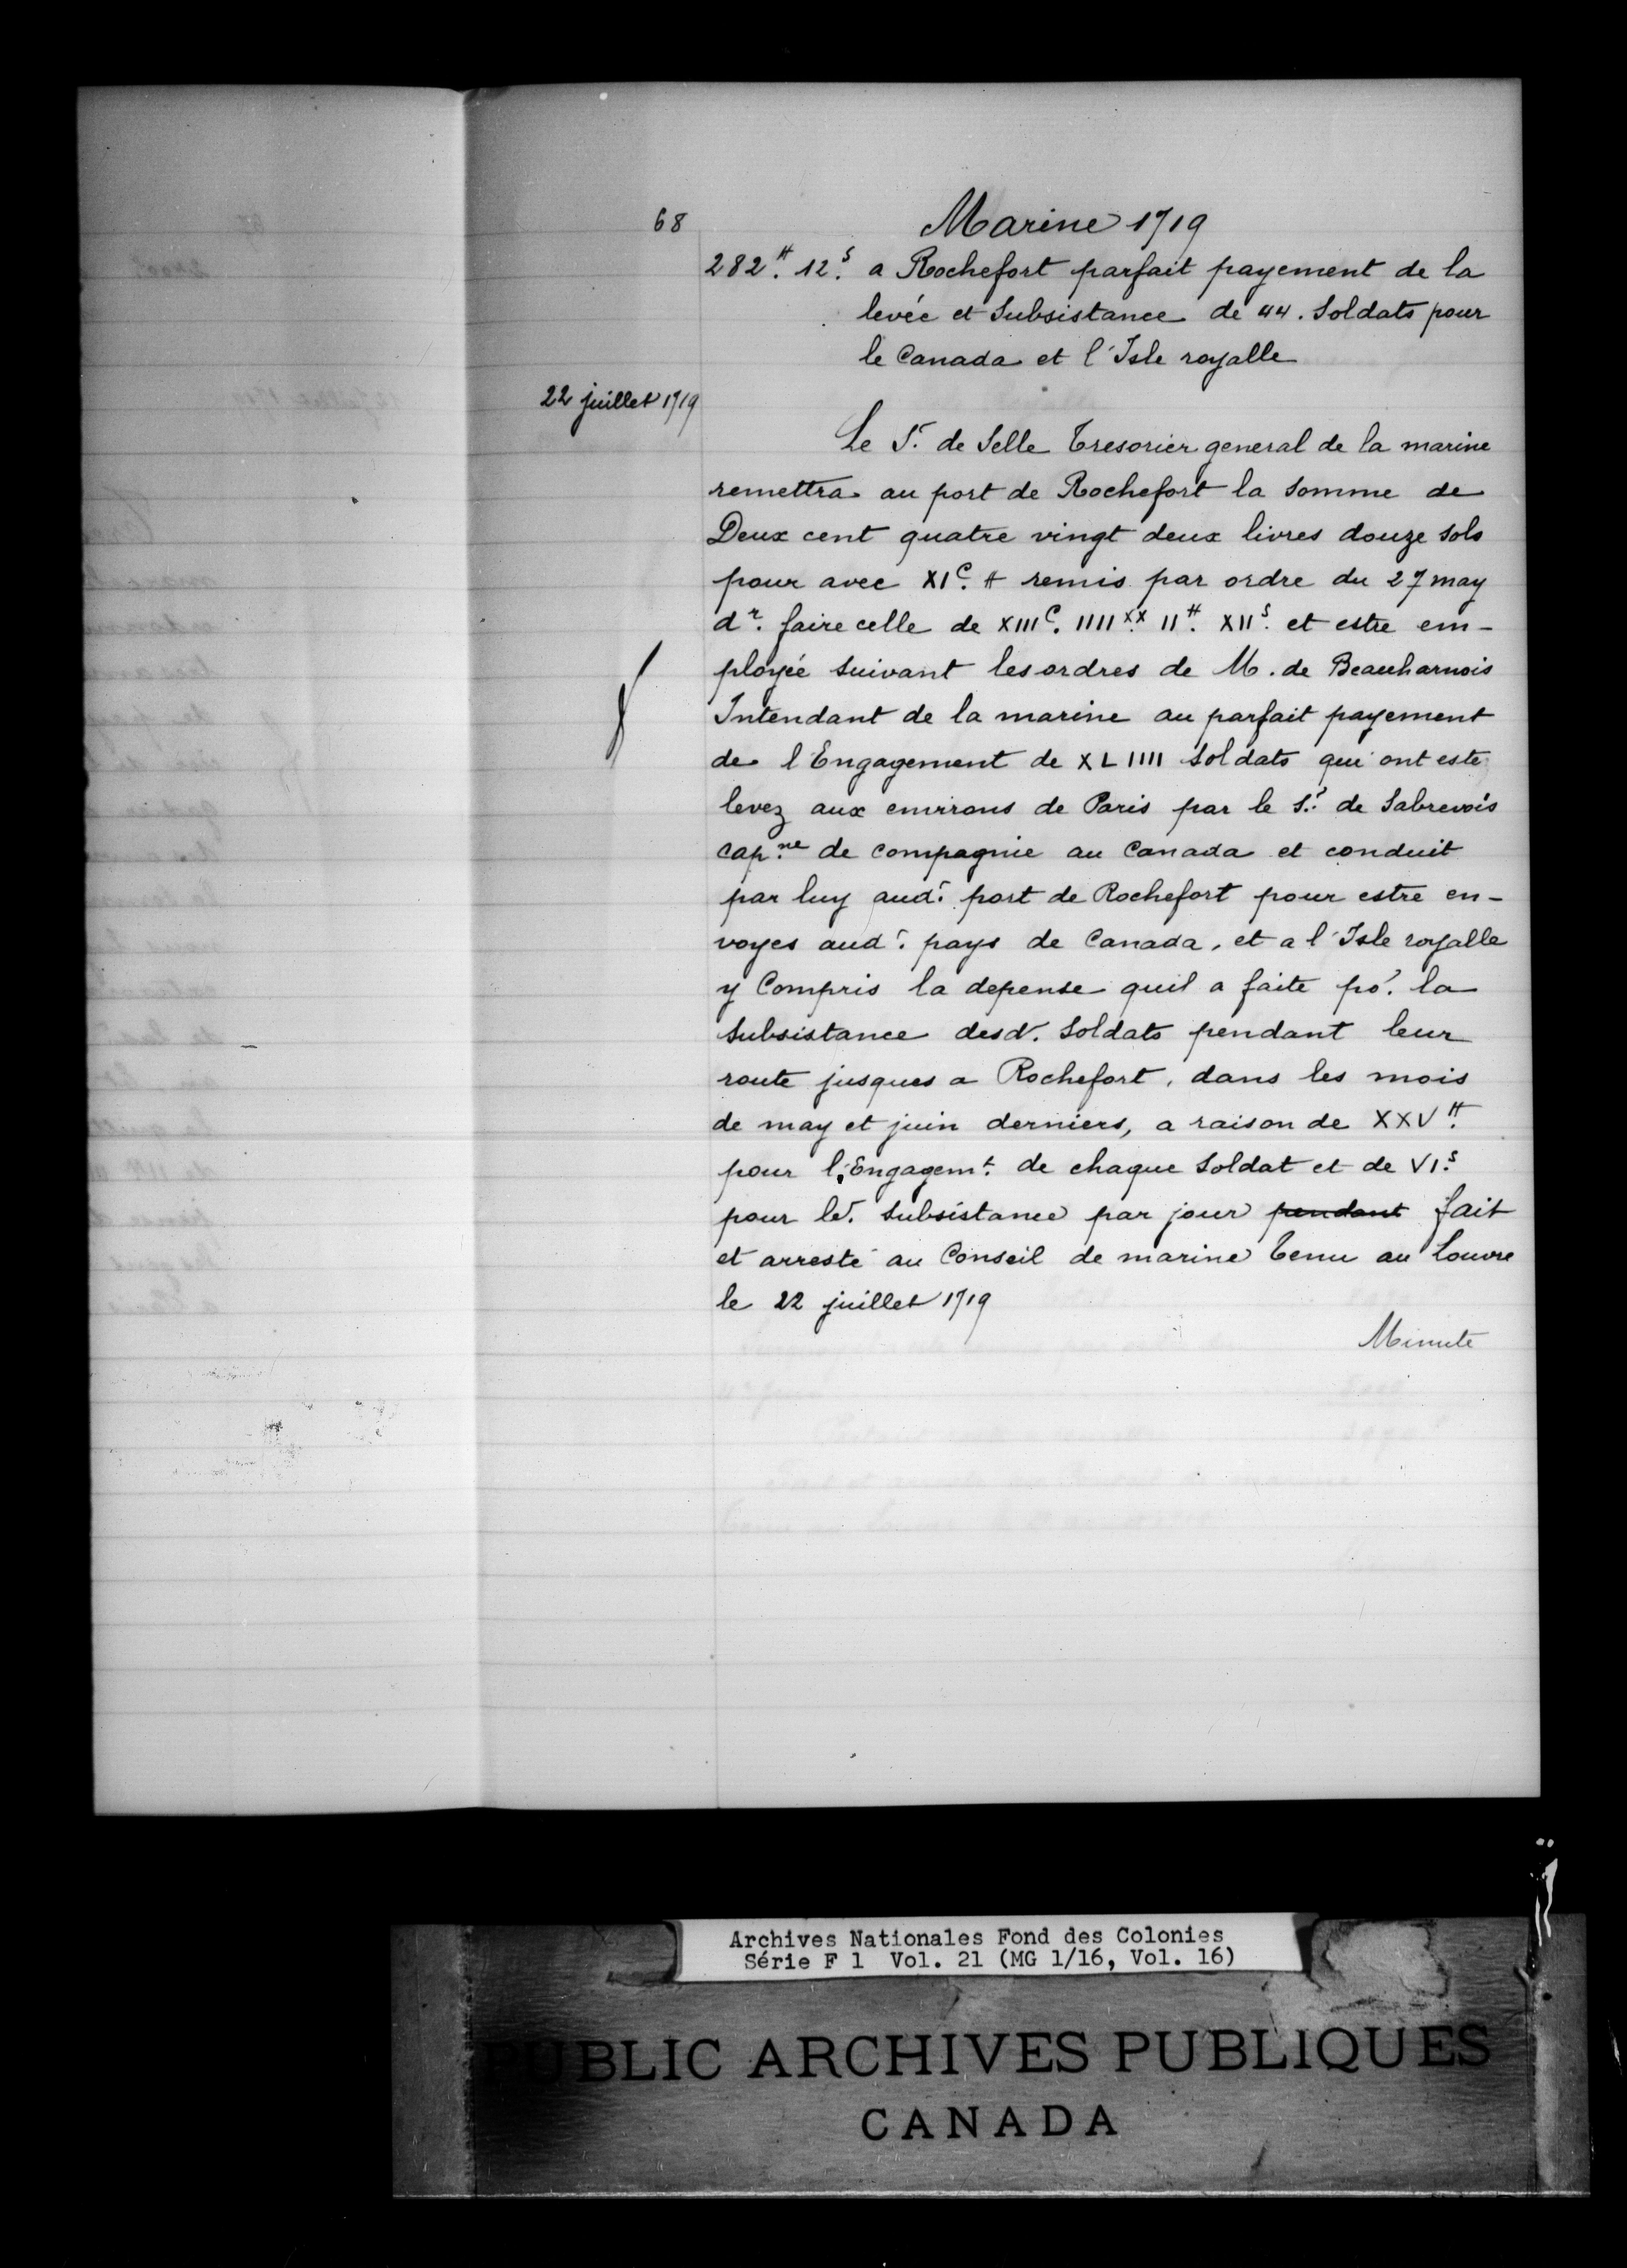 68
Marine 1719
282.₶ 12.s a Rochefort parfait payement de la
levée et Subsistance de 44. Soldats pour
le Canada et l'Isle royalle
22 juillet 1719
Le Sr. de Selle Tresorier general de la marine
remettra au port de Rochefort la Somme de
Deux cent quatre vingt deux livres douze sols
pour avec XIC. ₶ remis par ordre du 27 may
dr. faire celle de XIIIC. IIIIXX. II₶. XIIs. et estre em-
ployée suivant les ordres de M. de Beauharnois
Intendant de la marine au parfait payement
de l'Engagement de XLIIII soldats qui ont este
levez aux environs de Paris par le S.r de Sabrevois
cap.ne de compagnie au Canada et conduit
par luy aud.t port de Rochefort pour estre en-
voyes aud.t pays de Canada, et a l'Isle royalle
y Compris la depense quil a faite po.r la
subsistance desd. Soldats pendant leur
route jusques a Rochefort, dans les mois
de may et juin derniers, a raison de XXV₶.
pour l'Engagem.t de chaque Soldat et de VI.s
pour le.r subsistance par jour pendant fait
et arresté au Conseil de marine tenu au Louvre
le 22 juillet 1719
Minute
Archives Nationales Fond des Colonies
Série F 1 Vol. 21 (MG 1/16, Vol. 16)
PUBLIC ARCHIVES PUBLIQUES
CANADA